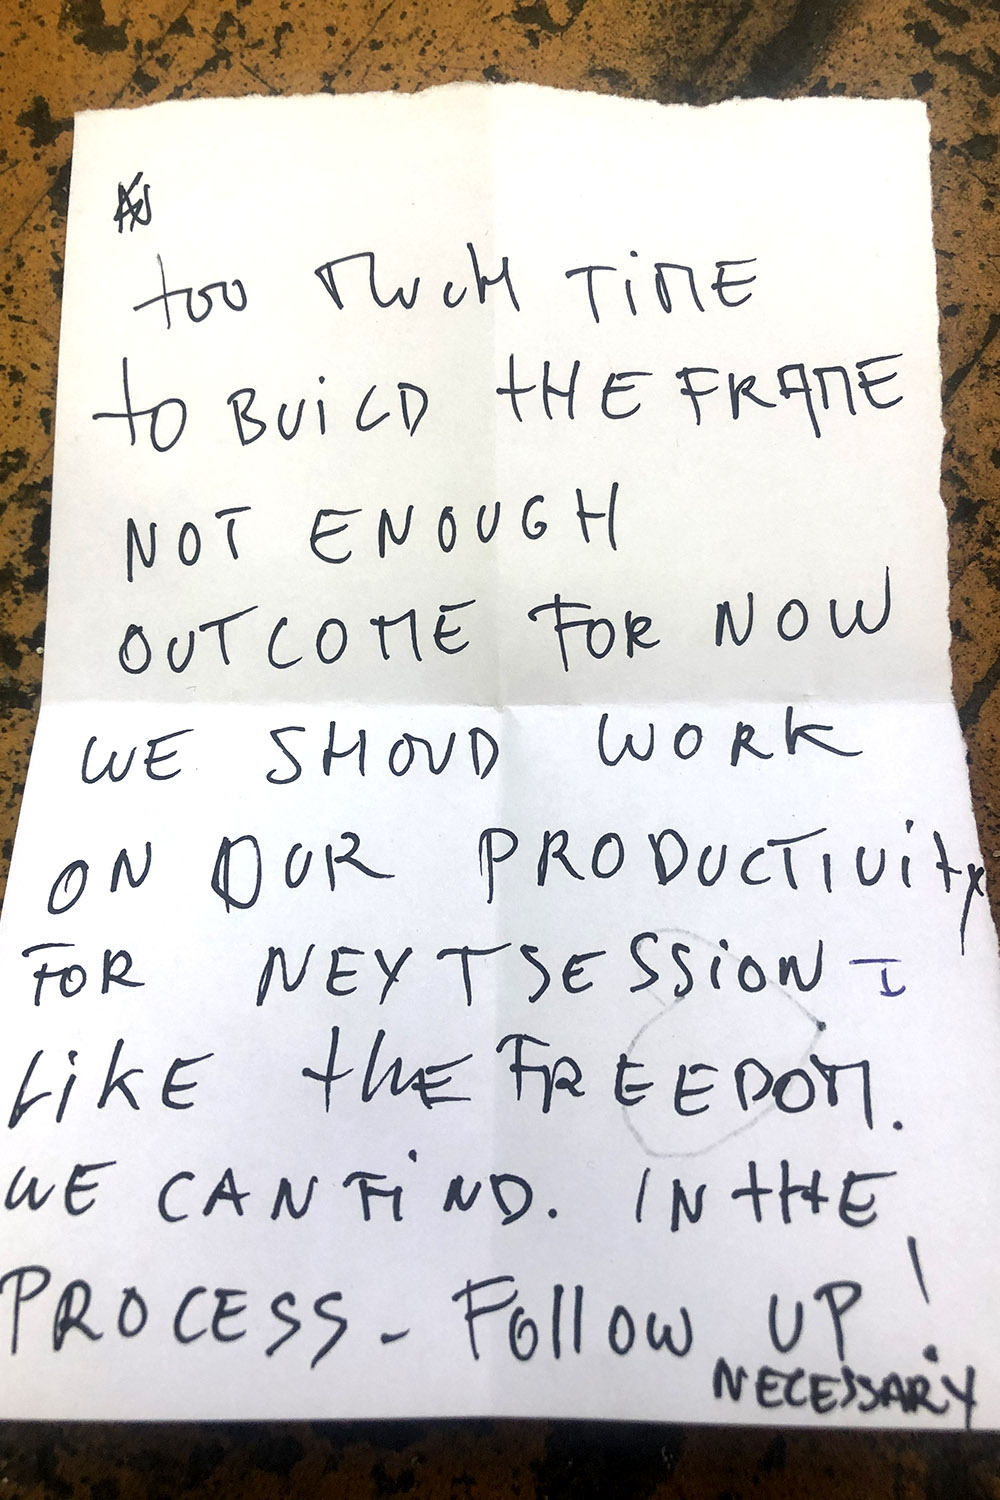 too much TiME
to BUiLD tHE FRAME
NOT ENOUGH
OUTCOME FOR NOW
WE SHOUD WORK
ON OUR PRODUCTIVity
FOR NEXT SESSiON - I
LiKE thE FREEDOM.
WE CAN FiND. IN tHE
PROCESS - Follow UP!
NECESSARY